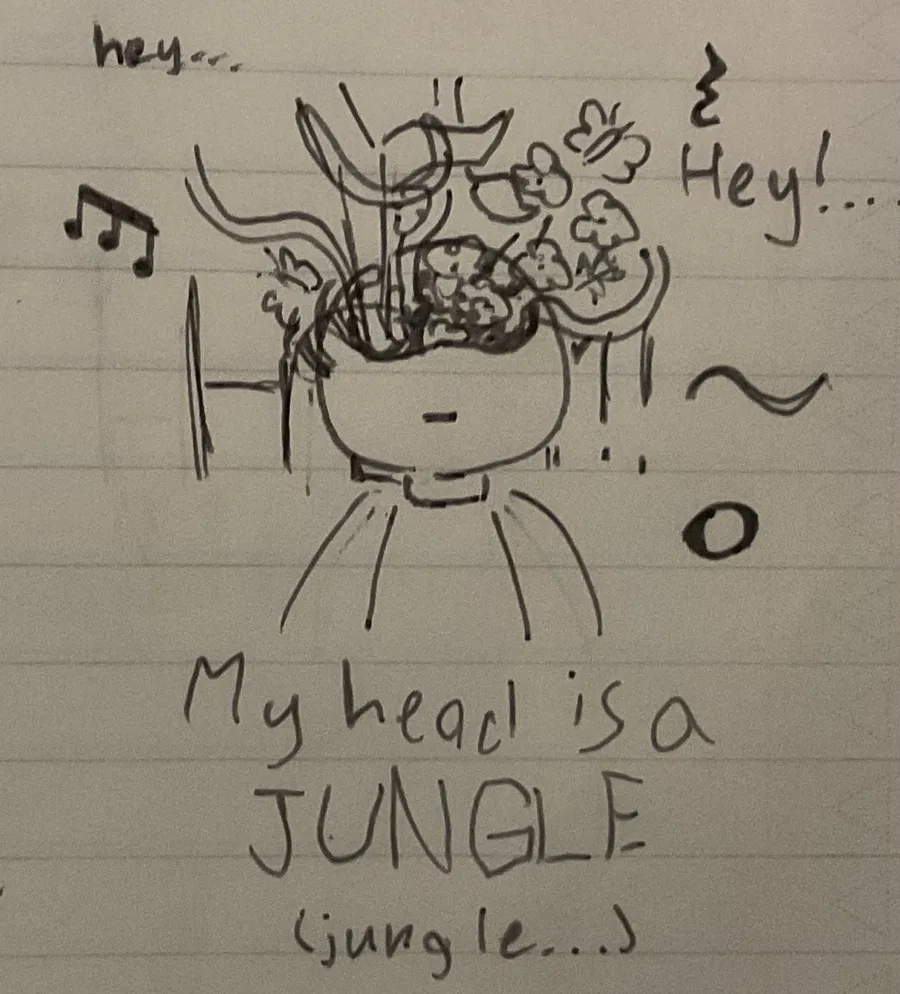 hey...
Hey!....
My head is a
JUNGLE
(jungle...)